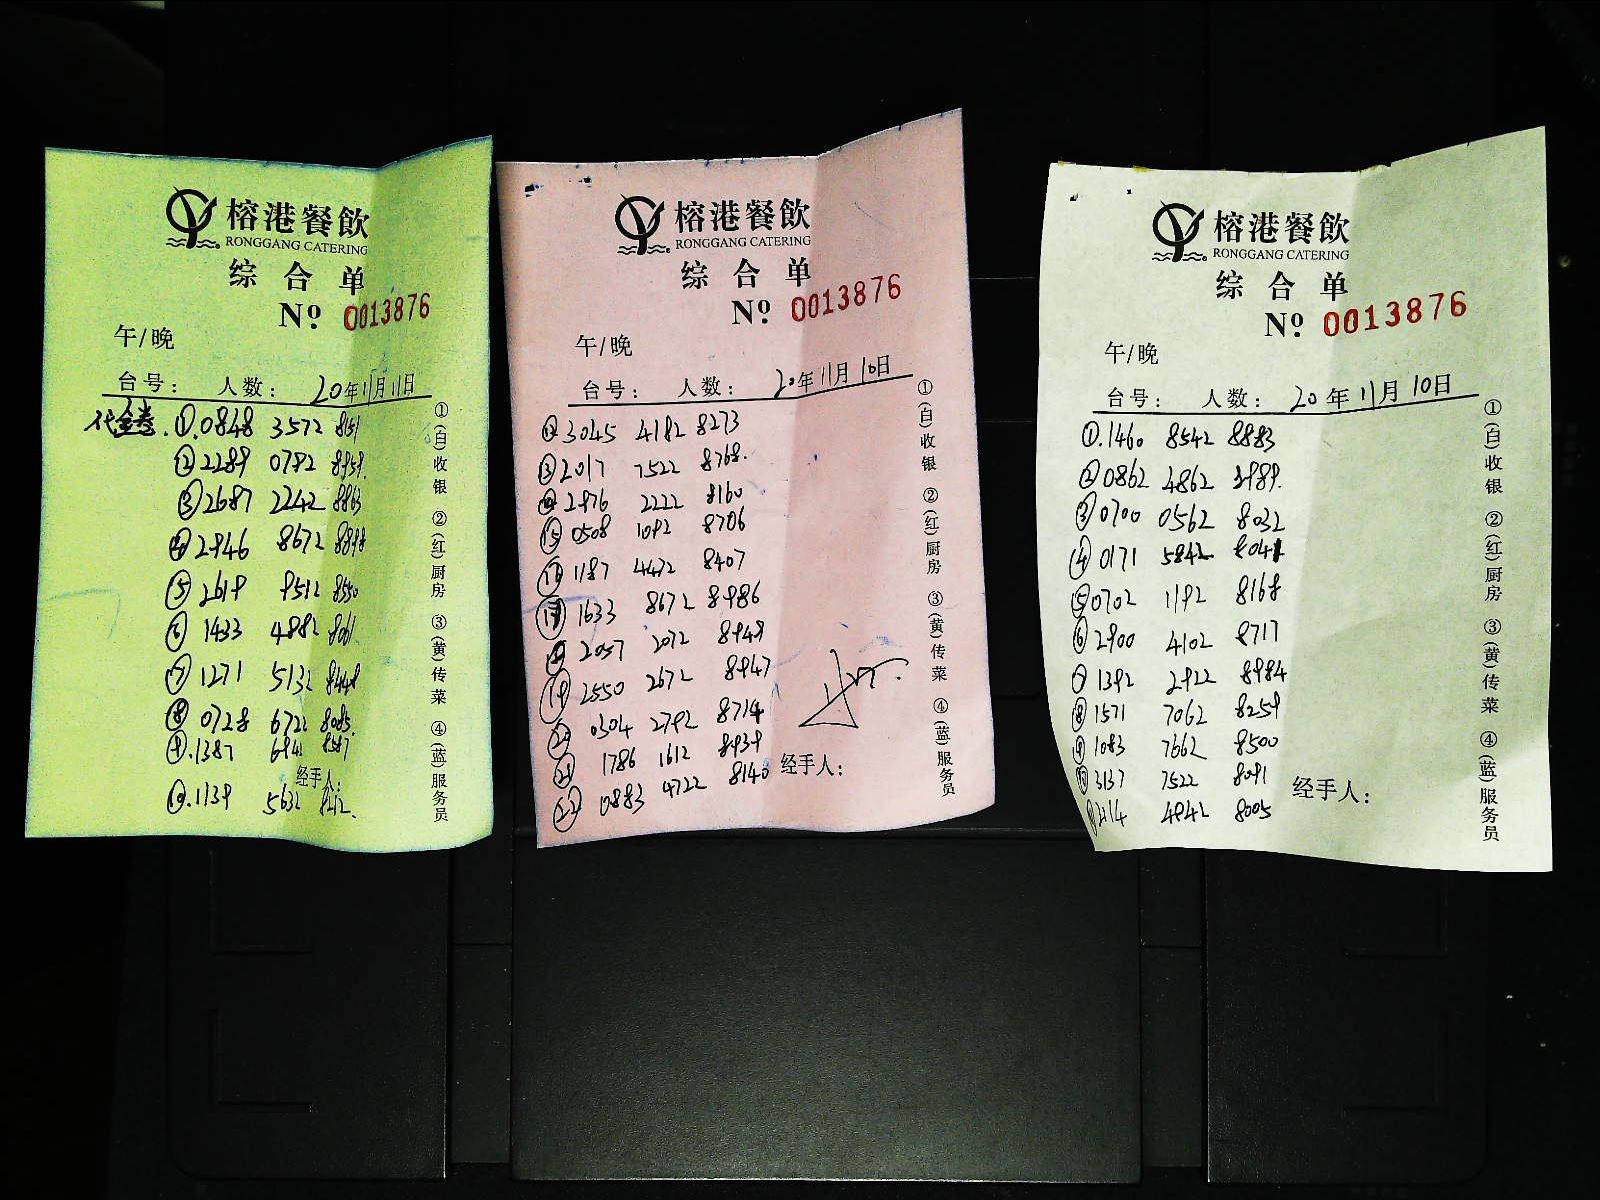 榕港餐飲
RONGGANG CATERING
综合单
No 0013876
午/晚
台号: 人数: 20年11月11日
代金券. ①.0848 3572 8151
②2289 0782 8959.
③2687 2242 8863
④2946 8672 8898
⑤2619 9512 8550
⑥1433 4882 8061
⑦1271 5132 8449
⑧0728 6722 8085.
⑨.1387 6942 8587
经手人:
⑩.1139 5632 8212.
①(白)收银 ②(红)厨房 ③(黄)传菜 ④(蓝)服务员
榕港餐飲
RONGGANG CATERING
综合单
No 0013876
午/晚
台号: 人数: 20年11月10日
⑫3045 4182 8273
⑬2017 7522 8768.
⑭2976 2222 8160
⑮0508 1092 8706
⑯1187 4472 8407
⑰1633 8672 8986
⑱2057 2072 8949
⑲2550 2672 8947
⑳0304 2792 8714
㉑1786 1612 8939
㉒0883 4722 8140
经手人:
①(白)收银 ②(红)厨房 ③(黄)传菜 ④(蓝)服务员
榕港餐飲
RONGGANG CATERING
综合单
No 0013876
午/晚
台号: 人数: 20年11月10日
①.1460 8542 8883
②0862 4862 3989.
③0700 0562 8032
④0171 5842 8041
⑤0702 1192 8168
⑥2900 4102 8717
⑦1392 2922 8984
⑧1571 7062 8259
⑨1083 7662 8500
⑩3137 7522 8091
⑪2114 4842 8005
经手人:
①(白)收银 ②(红)厨房 ③(黄)传菜 ④(蓝)服务员